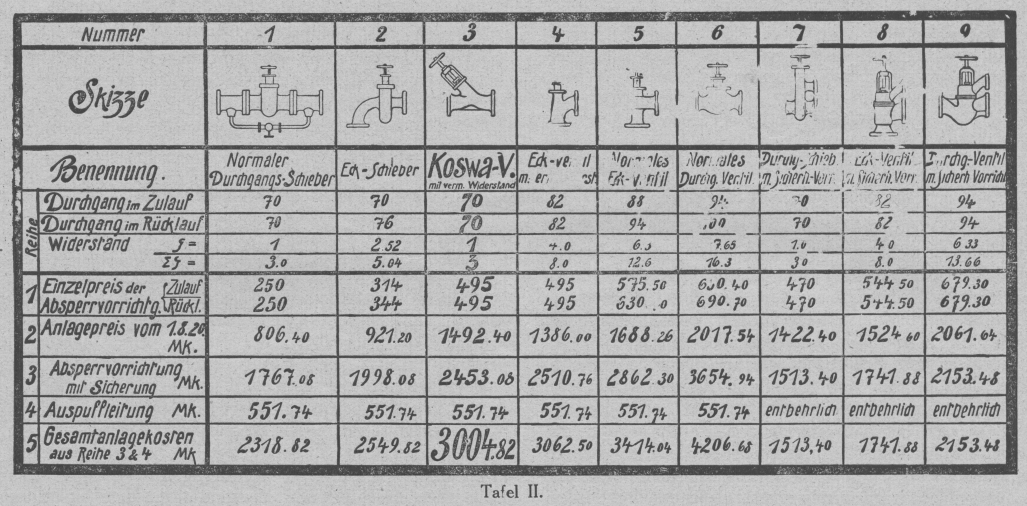 Nummer 1 2 3 4 5 6 7 8 9
Skizze
Benennung. Normaler Durchgangs-Schieber Eck-Schieber Koswa-V. mit verm. Widerstand Eck-ventil Normales Eck-Ventil Normales Durchg. Ventil Durchg.-Schieb. m. Sicherh.-Vorr. Eck-Ventil m. Sicherh. Vorr. Durchg-Ventil m. Sicherh. Vorricht
Reihe
Durchgang im Zulauf 70 70 70 82 88 94 70 82 94
Durchgang im Rücklauf 70 76 70 82 94 100 70 82 94
Widerstand ζ = 1 2.52 1 4.0 6.3 7.65 1.0 4.0 6 33
Σζ = 3.0 5.04 3 8.0 12.6 16.3 3.0 8.0 13.66
1 Einzelpreis der Zulauf 250 314 495 495 575.50 470 544.50 679.30
Absperrvorrichtg. Rückl. 250 344 495 495 690.70 470 544.50 679.30
2 Anlagepreis vom 1.8.20. MK. 806.40 921.20 1492.40 1386.00 1688.26 2017.54 1422.40 1524 60 2061.64
3 Absperrvorrichtung mit Sicherung MK. 1767.08 1998.08 2453.08 2510.76 2862.30 3654.94 1513.40 1741.88 2153.48
4 Auspuffleitung MK. 551.74 551.74 551.74 551.74 551.74 551.74 entbehrlich entbehrlich entbehrlich
5 Gesamtanlagekosten aus Reihe 3 & 4 MK 2318.82 2549.82 3004.82 3062.50 3414.04 4206.68 1513,40 1741.88 2153.48
Tafel II.